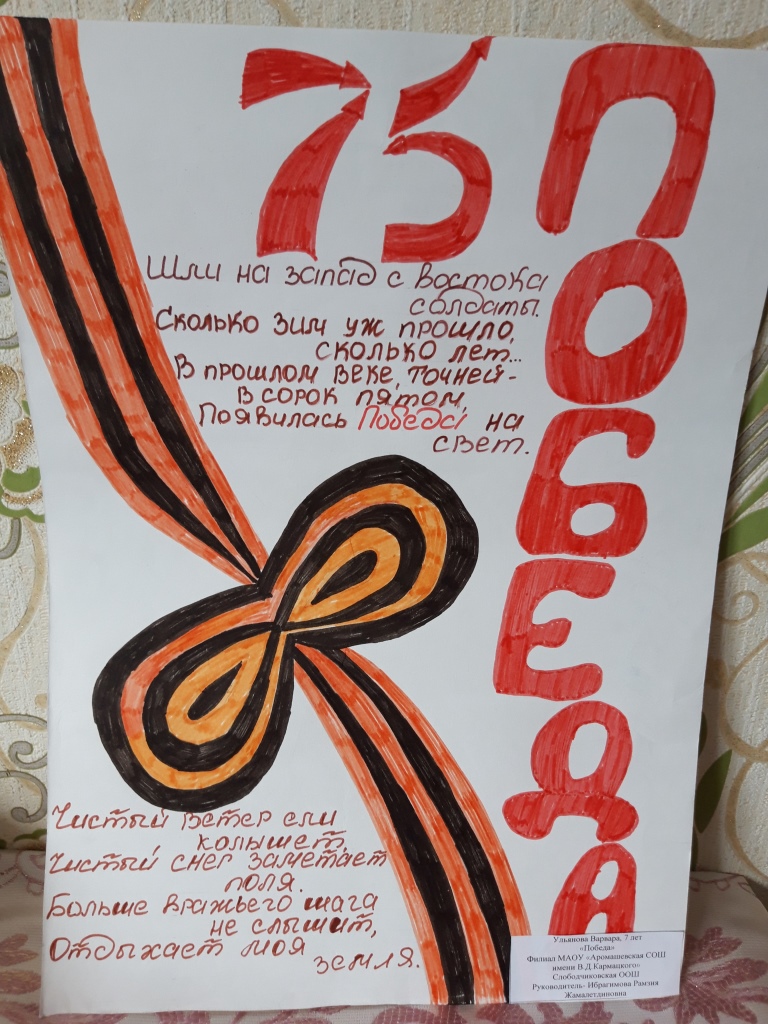 75
ПОБЕДА
Шли на запад с Востока
солдаты.
Сколько зим уж прошло,
сколько лет...
В прошлом веке, точней-
в сорок пятом,
Появилась Победа на
свет.
Чистый ветер ели
колышет,
Чистый снег заметает
поля.
Больше вражьего шага
не слышит,
Отдыхает моя
земля.
Ульянова Варвара, 7 лет
«Победа»
Филиал МАОУ «Аромашевская СОШ
имени В.Д.Кармацкого»
Слободчиковская ООШ
Руководитель- Ибрагимова Рамзия
Жамалетдиновна